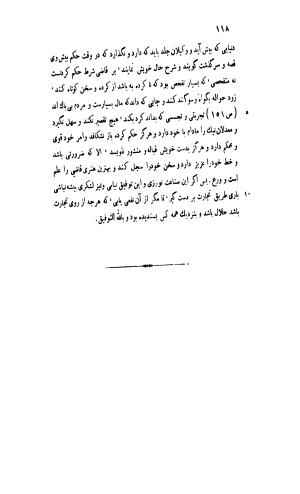 ۱۱۸
دنیایی که پیش آید و وکیلان جلد باید که دارد و نگذارد که در وقت حکم پیش وی
قصه و سرگذشت گویند و شرح حال خویش نمایند ، بر قاضی شرط حکم کردست
نه متفحصی ، که بسیار تفحص بود که نا کرده به باشد از کرده و سخن کوتاه کند ،
زود حواله بگواه و سوگند کند و جایی که داند که مال بسیارست و مردم بی باك اند
۵ (ص ۱۵۱) تجربتی و تجسسی که بداند کرد بکند ، هیچ تقصیر نکند و سهل نگیرد
و معدلان نیك را مادام با خود دارد و هرگز حکم کرده باز نشکافد و امر خود قوی
و محکم دارد و هرگز بدست خویش قباله و منشور ننویسد ، الا که ضرورتی باشد
و خط خود را عزیز دارد و سخن خود را سجل کند و بهترین هنری قاضی را علم
است و ورع . پس اگر این صناعت نورزی و این توفیق نیابی ولیز لشکری پیشه نباشی
۱۰ باری طریق تجارت بر دست گیر ، تا مگر از آن نفعی یابی ، که هرچه از روی تجارت
باشد حلال باشد و بنزدیك همه کس پسندیده بود و بالله التوفیق.